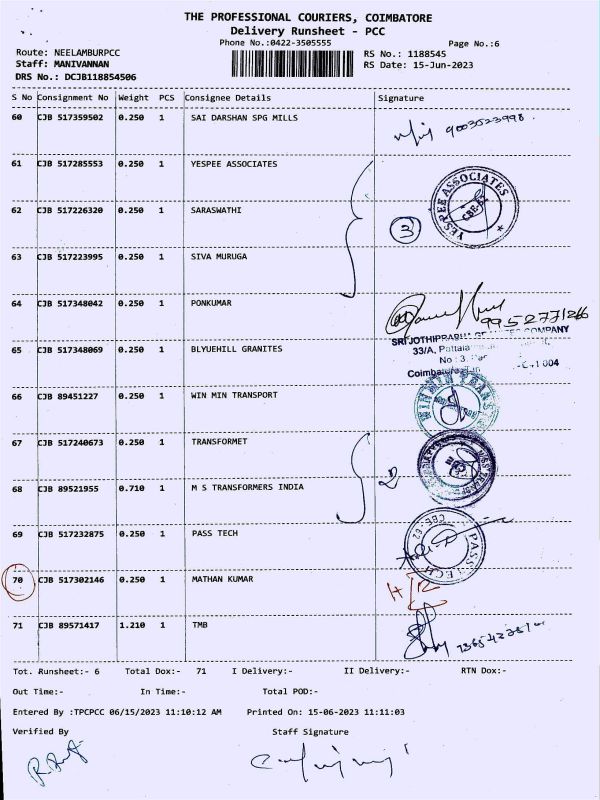 THE PROFESSIONAL COURIERS, COIMBATORE
Delivery Runsheet - PCC
Phone No.:0422-3505555
Page No.:6
Route: NEELAMBURPCC
RS No.: 1188545
Staff: MANIVANNAN
RS Date: 15-Jun-2023
DRS No.: DCJB118854506
S No Consignment No Weight PCS Consignee Details Signature
60 CJB 517359502 0.250 1 SAI DARSHAN SPG MILLS
9003523998.
61 CJB 517285553 0.250 1 YESPEE ASSOCIATES
YESPEE ASSOCIATES
CBE-62
62 CJB 517226320 0.250 1 SARASWATHI
3
63 CJB 517223995 0.250 1 SIVA MURUGA
64 CJB 517348042 0.250 1 PONKUMAR
9952771266
SRI JOTHIPRABHA COMPANY
65 CJB 517348069 0.250 1 BLYUEHILL GRANITES
33/A,
No : 3,
66 CJB 89451227 0.250 1 WIN MIN TRANSPORT
WIN MIN
67 CJB 517240673 0.250 1 TRANSFORMET
2
68 CJB 89521955 0.710 1 M S TRANSFORMERS INDIA
69 CJB 517232875 0.250 1 PASS TECH
PASS TECH
CBE-62
70 CJB 517302146 0.250 1 MATHAN KUMAR
71 CJB 89571417 1.210 1 TMB
Tot. Runsheet:- 6 Total Dox:- 71 I Delivery:- II Delivery:- RTN Dox:-
Out Time:- In Time:- Total POD:-
Entered By :TPCPCC 06/15/2023 11:10:12 AM Printed On: 15-06-2023 11:11:03
Verified By Staff Signature